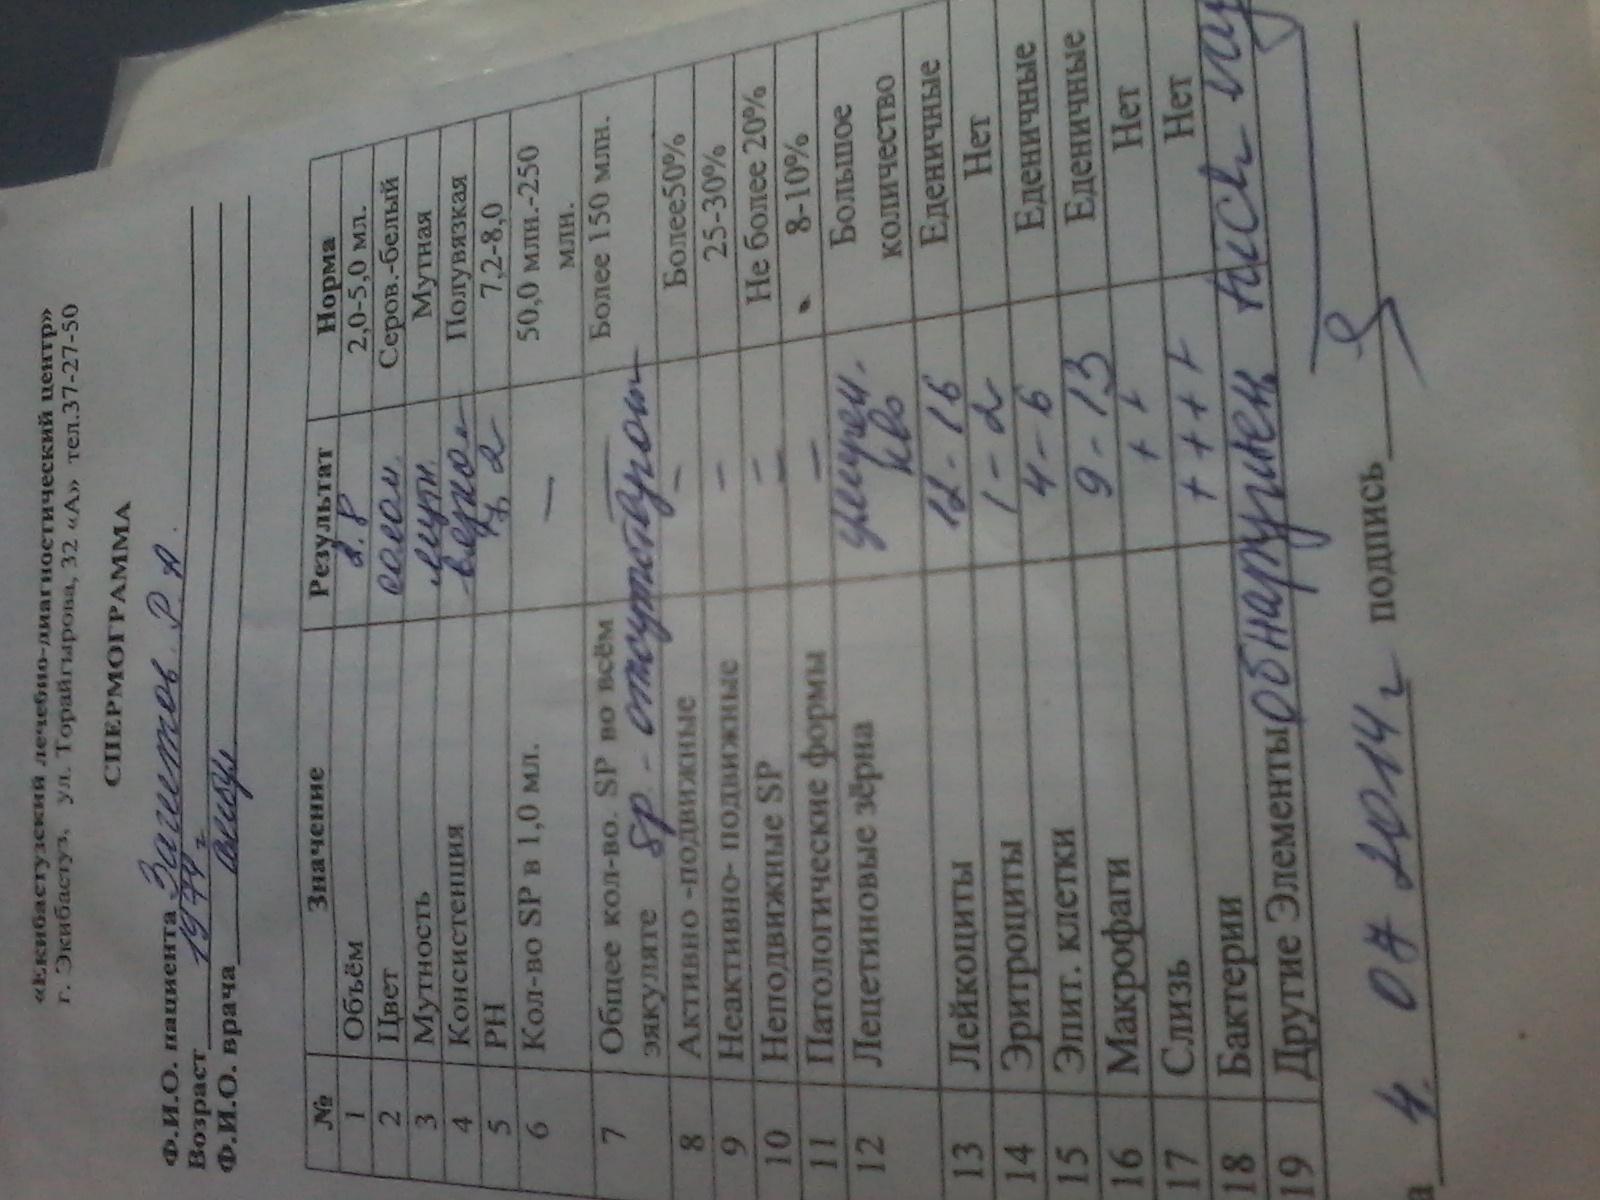 «Екибастузский лечебно-диагностический центр»
г. Экибастуз, ул. Торайгырова, 32 «А» тел.37-27-50
СПЕРМОГРАММА
Ф.И.О. пациента Загитов Р. А.
Возраст 1974 г
Ф.И.О. врача
№ Значение Результат Норма
1 Объём 2.8 2,0-5,0 мл.
2 Цвет Серов.-белый
3 Мутность мутн Мутная
4 Консистенция вязкая Полувязкая
5 РН 7,2 7,2-8,0
6 Кол-во SP в 1,0 мл. — 50,0 млн.-250
млн.
7 Общее кол-во. SP во всём Более 150 млн.
эякуляте Sp - отсутствуют
8 Активно -подвижные – Более50%
9 Неактивно- подвижные – 25-30%
10 Неподвижные SP – Не более 20%
11 Патологические формы – 8-10%
12 Лецетиновые зёрна умерен. Большое
кво количество
13 Лейкоциты 12-16 Еденичные
14 Эритроциты 1-2 Нет
15 Эпит. клетки 4-6 Еденичные
16 Макрофаги 9-13 Еденичные
17 Слизь + + Нет
18 Бактерии + + + Нет
19 Другие Элементы обнаружен
4. 07 2014 г подпись